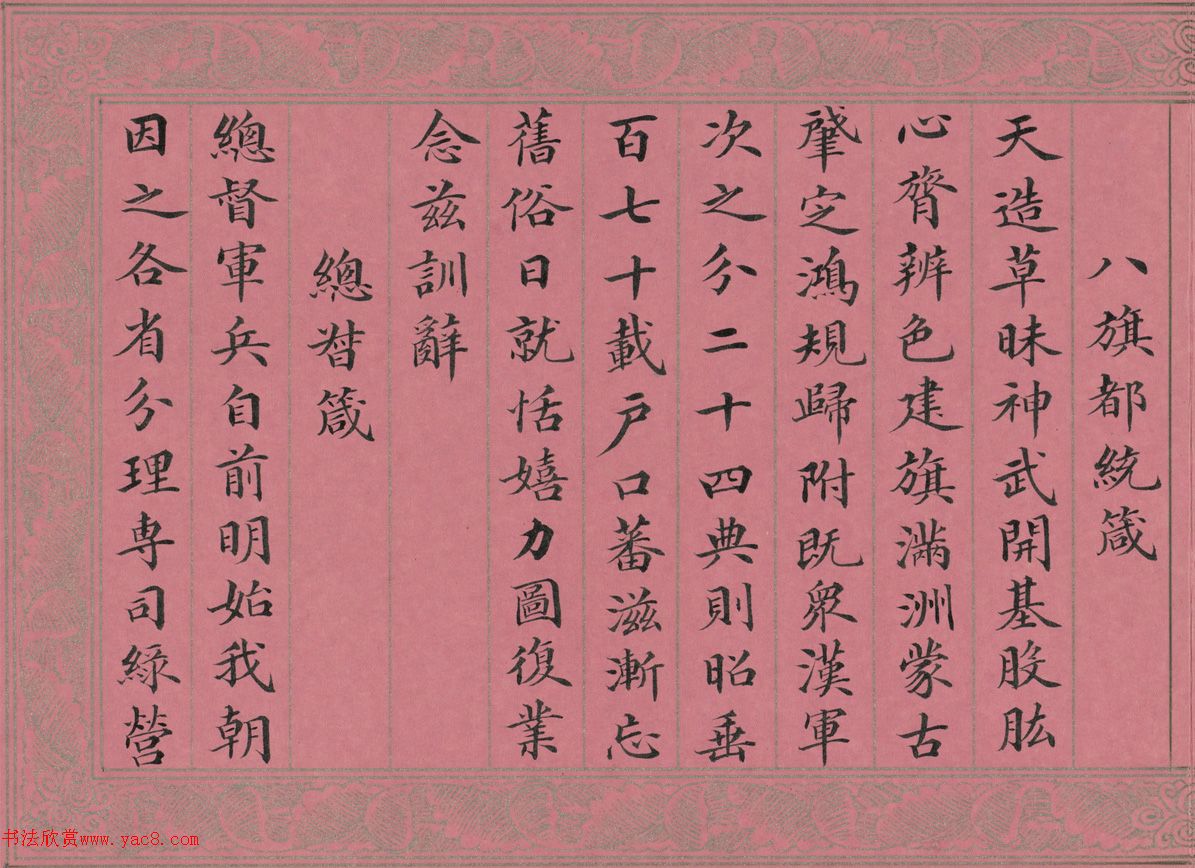 八旗都統箴
天造草昧神武開基股肱
心膂辨色建旗滿洲蒙古
肇定鴻規歸附既衆漢軍
次之分二十四典則昭垂
百七十載戶口蕃滋漸忘
舊俗日就恬嬉力圖復業
念兹訓辭
總督箴
總督軍兵自前明始我朝
因之各省分理專司綠營
书法欣赏www.yac8.com